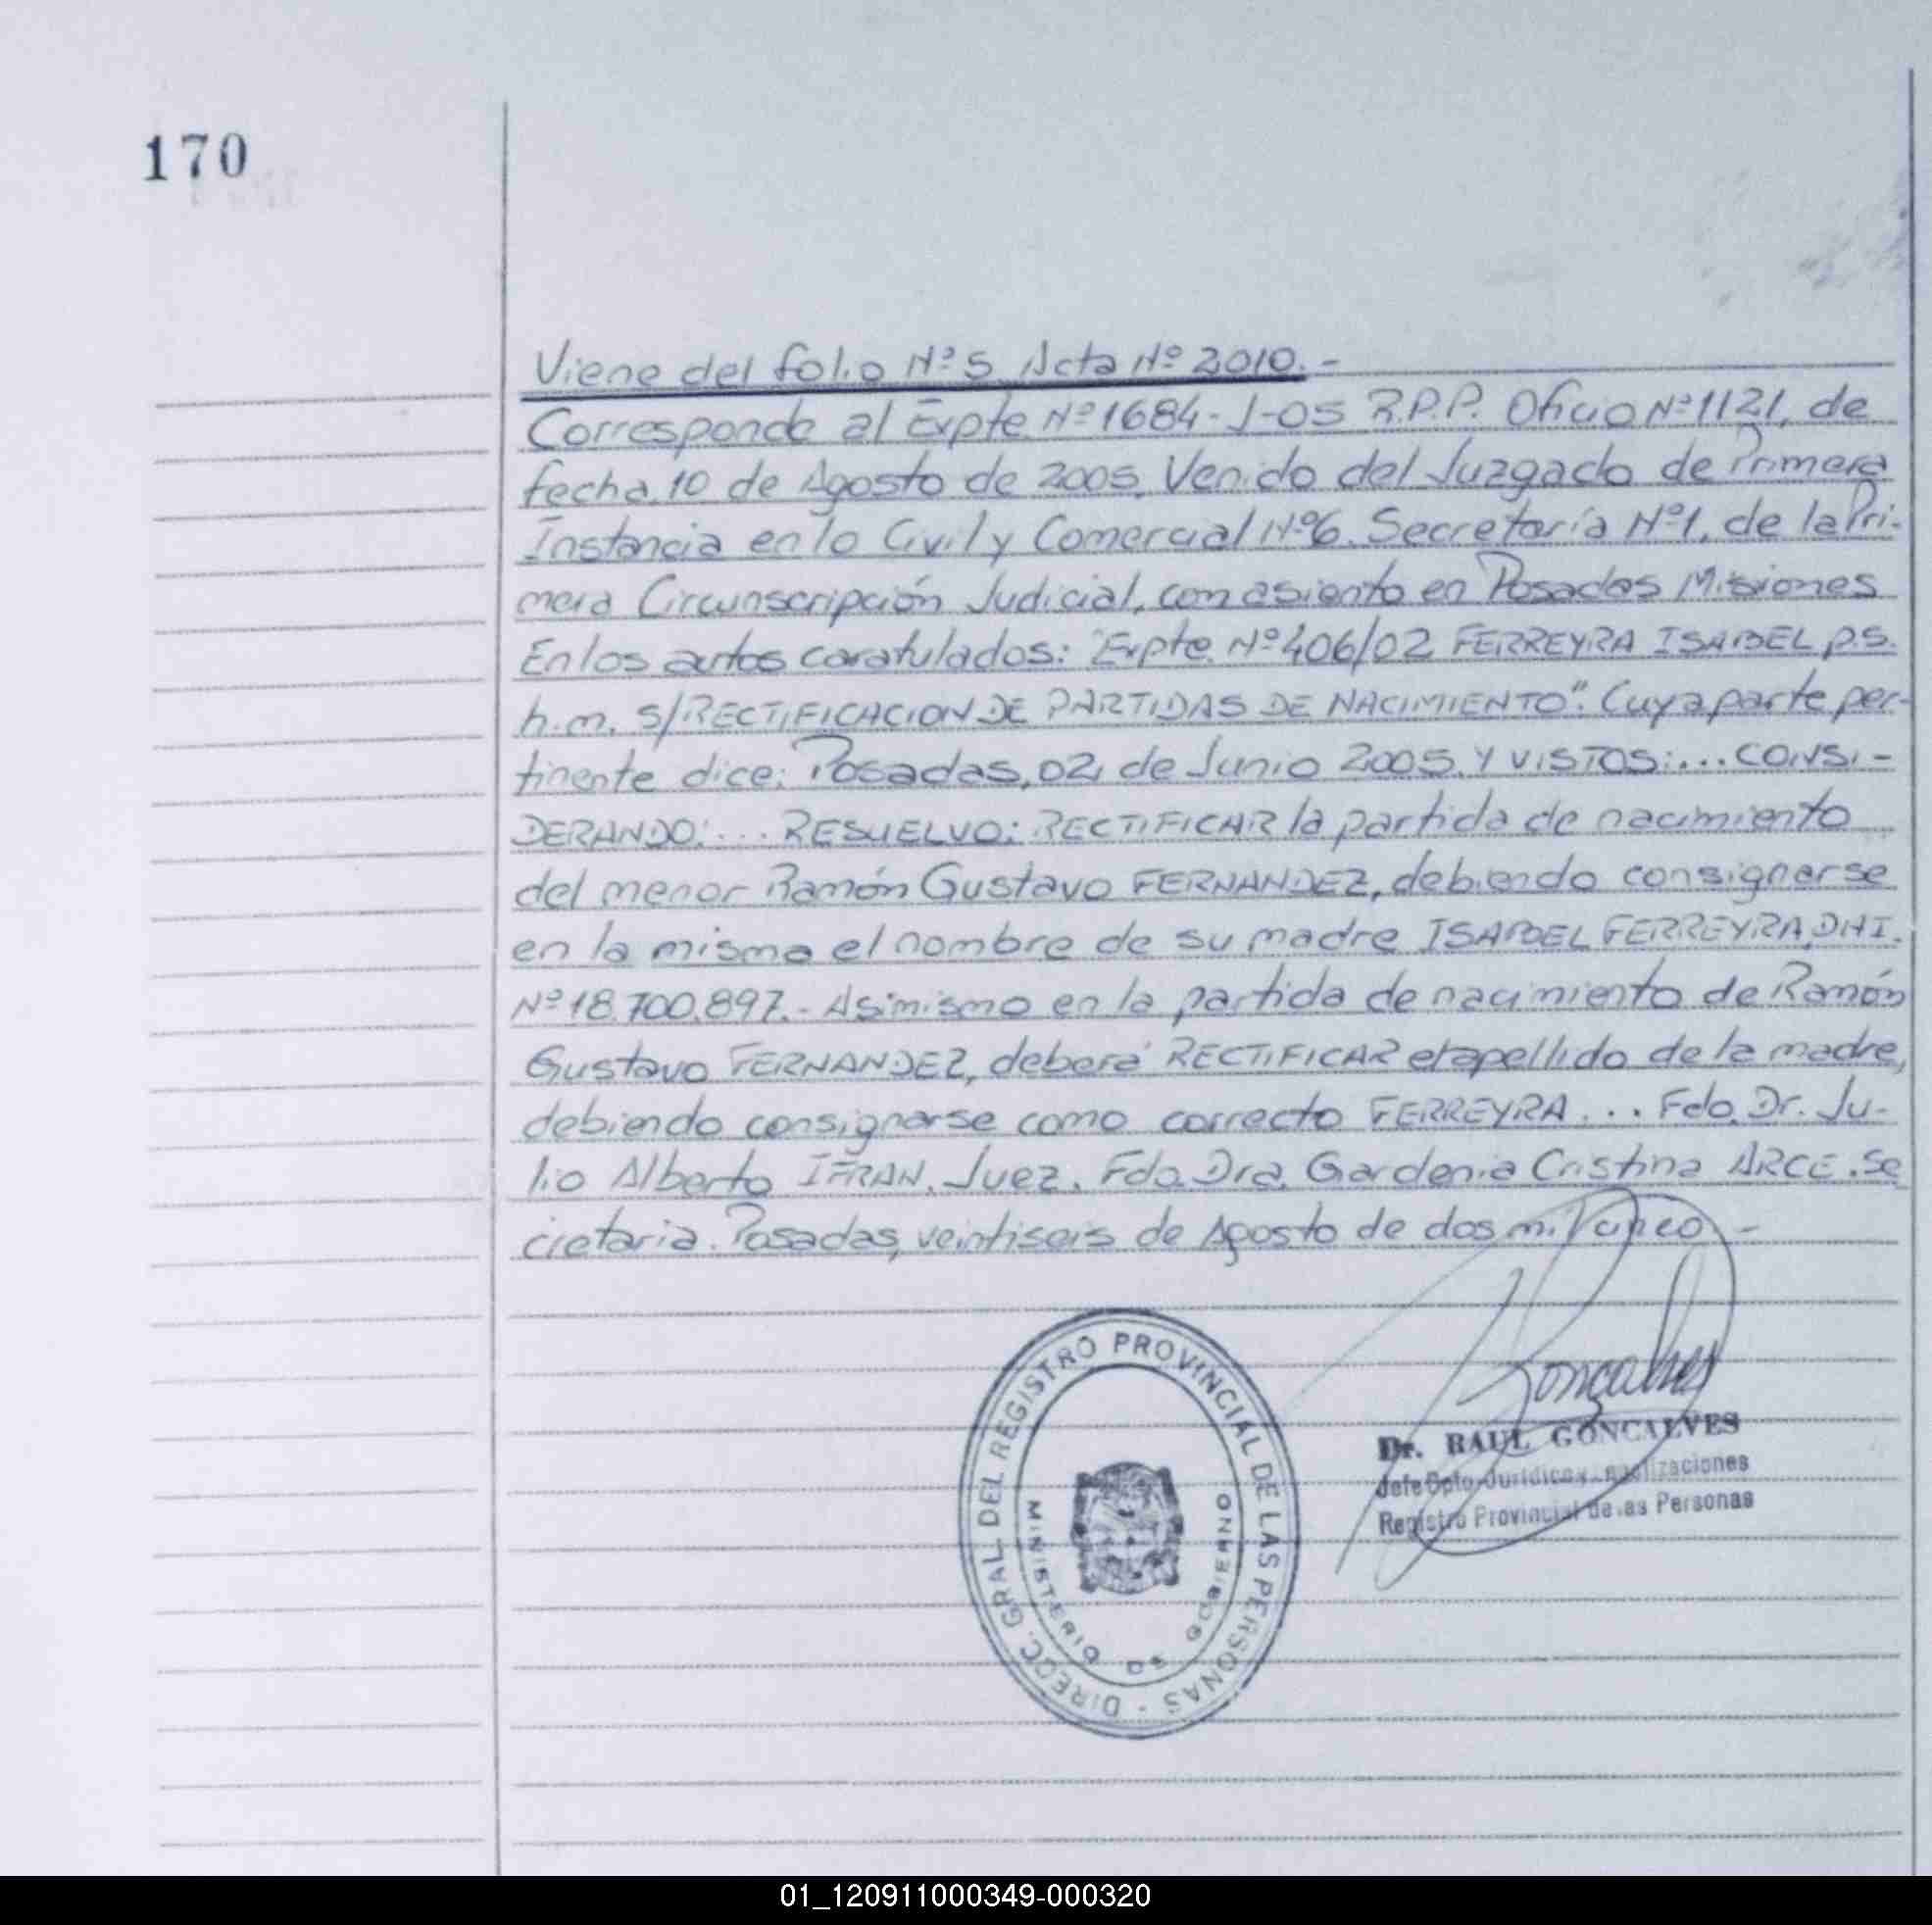 170
Viene del folio Nº 5 Acta Nº 2010.-
Corresponde al Expte Nº 1684-J-05 R.P.P. Oficio Nº 1121, de
fecha 10 de Agosto de 2005. Venido del Juzgado de Primera
Instancia en lo Civil y Comercial Nº 6. Secretaría Nº 1, de la Pri-
mera Circunscripción Judicial, con asiento en Posadas Misiones
En los autos caratulados: "Expte. Nº 406/02 FERREYRA ISABEL p.s.
h.m. S/RECTIFICACION DE PARTIDAS DE NACIMIENTO". Cuya parte per-
tinente dice: Posadas, 02, de Junio 2005. Y VISTOS:... CONSI-
DERANDO:... RESUELVO: RECTIFICAR la partida de nacimiento
del menor Ramón Gustavo FERNANDEZ, debiendo consignarse
en la misma el nombre de su madre ISABEL FERREYRA, DNI.
Nº 18.700.897.- Asimismo en la partida de nacimiento de Ramón
Gustavo FERNANDEZ, deberá RECTIFICAR el apellido de la madre,
debiendo consignarse como correcto FERREYRA... Fdo. Dr. Ju-
lio Alberto IFRAN. Juez. Fdo. Dra. Gardenia Cristina ARCE. Se
cretaria. Posadas, veintiseis de Agosto de dos mil cinco.-
DIRECC. GRAL. DEL REGISTRO PROVINCIAL DE LAS PERSONAS
MINISTERIO DE GOBIERNO
Goncalves
Dr. RAUL GONCALVES
Jefe Dpto. Jurídico y
Registro Provincial de las Personas
01_120911000349-000320